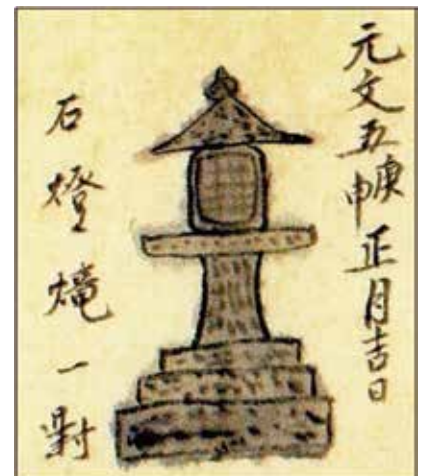 元文五庚申正月吉日
石燈篭一對